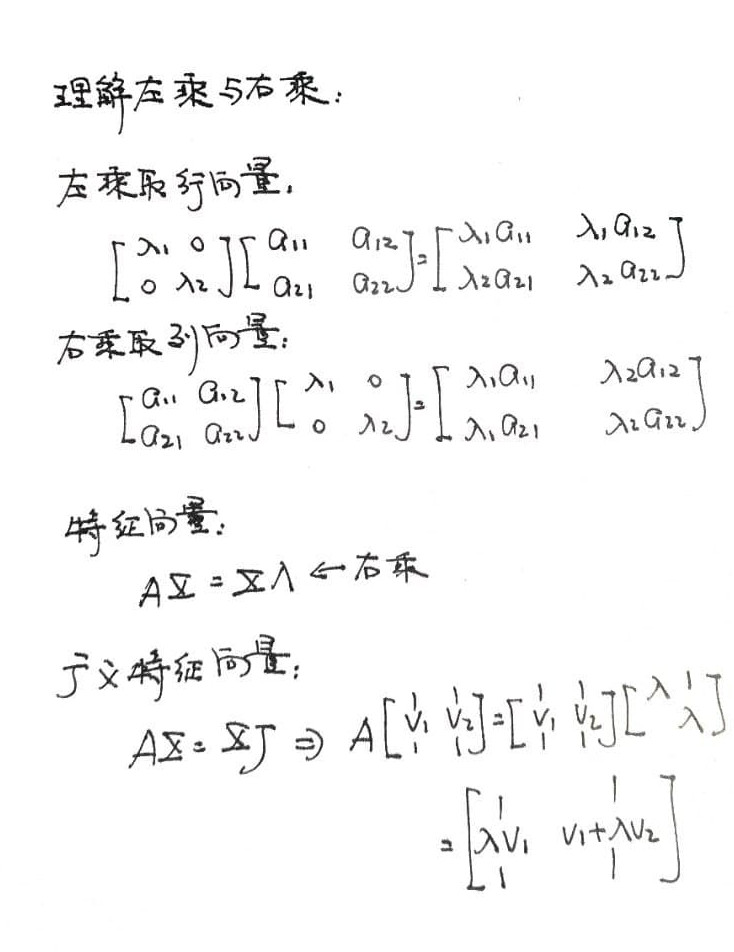 理解左乘与右乘:
左乘取行向量,
[λ₁ 0; 0 λ₂][a₁₁ a₁₂; a₂₁ a₂₂]=[λ₁a₁₁ λ₁a₁₂; λ₂a₂₁ λ₂a₂₂]
右乘取列向量:
[a₁₁ a₁₂; a₂₁ a₂₂][λ₁ 0; 0 λ₂]=[λ₁a₁₁ λ₂a₁₂; λ₁a₂₁ λ₂a₂₂]
特征向量:
AX=XΛ ← 右乘
广义特征向量:
AX=XJ ⇒ A[v₁ v₂]=[v₁ v₂][λ 1; λ]
=[λv₁ v₁+λv₂]